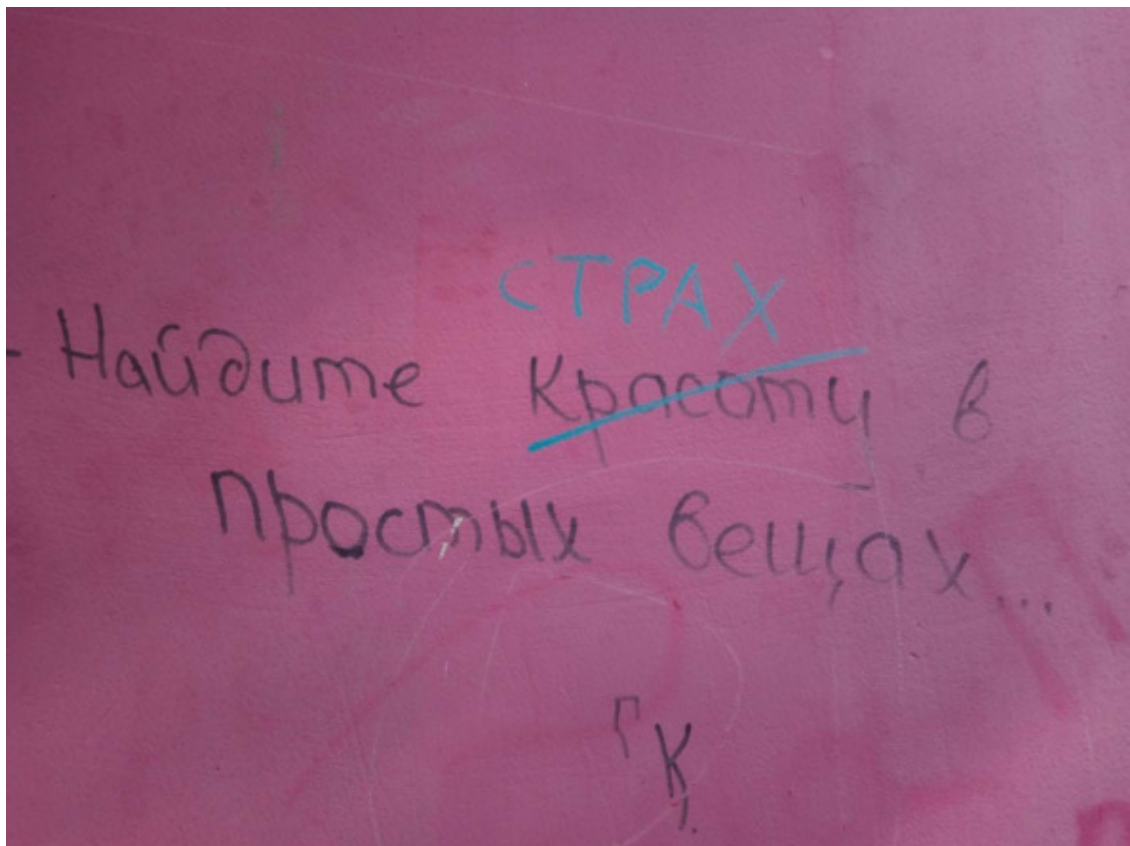 СТРАХ
- Найдите красоту в
простых вещах...